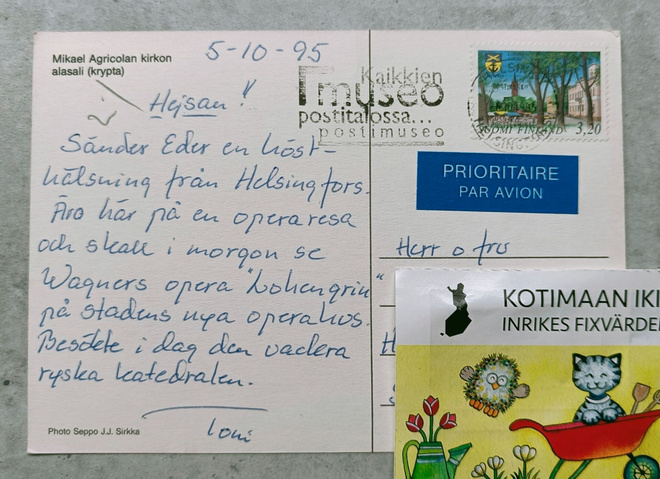 Mikael Agricolan kirkon
alasali (krypta)
5-10-95
Hejsan!!
Sänder Eder en höst-
hälsning från Helsingfors.
Äro här på en operaresa
och skall i morgon se
Wagners opera "Lohengrin"
på stadens nya operahus.
Besökte i dag den vackra
ryska katedralen.
Toni
Photo Seppo J.J. Sirkka
Kaikkien
museo
postitalossa...
postimuseo
SUOMI FINLAND 3,20
PRIORITAIRE
PAR AVION
Herr o fru
KOTIMAAN IKI
INRIKES FIXVÄRDE